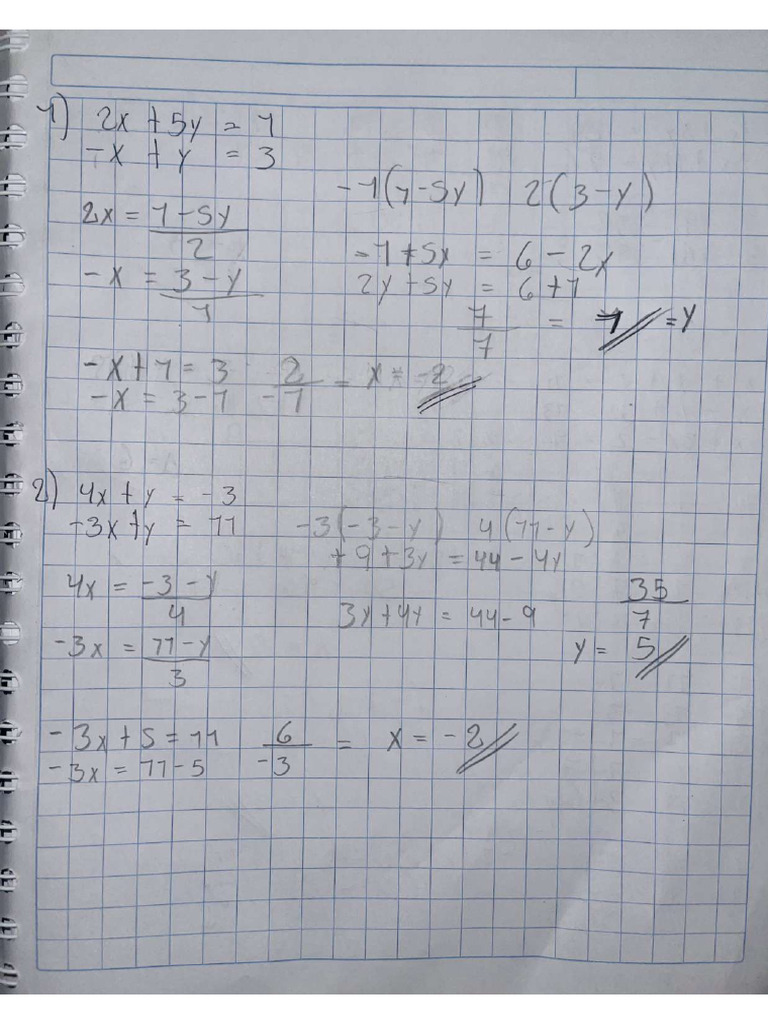 1) 2x + 5y = 1
-x + y = 3
-1(1-5y) 2(3-y)
2x = 1-5y
2
-1+5x = 6-2x
-x = 3-y
1
2y+5y = 6+1
7
7
= 1 = y
-x+1 = 3
-x = 3-1
2
-1
= x = -2
2) 4x+y = -3
-3x+y = 11
-3(-3-y) 4(11-y)
+9+3y = 44-4y
4x = -3-y
4
3y+4y = 44-9
35
7
-3x = 11-y
3
y = 5
-3x+5=11
-3x = 11-5
6
-3
= x = -2